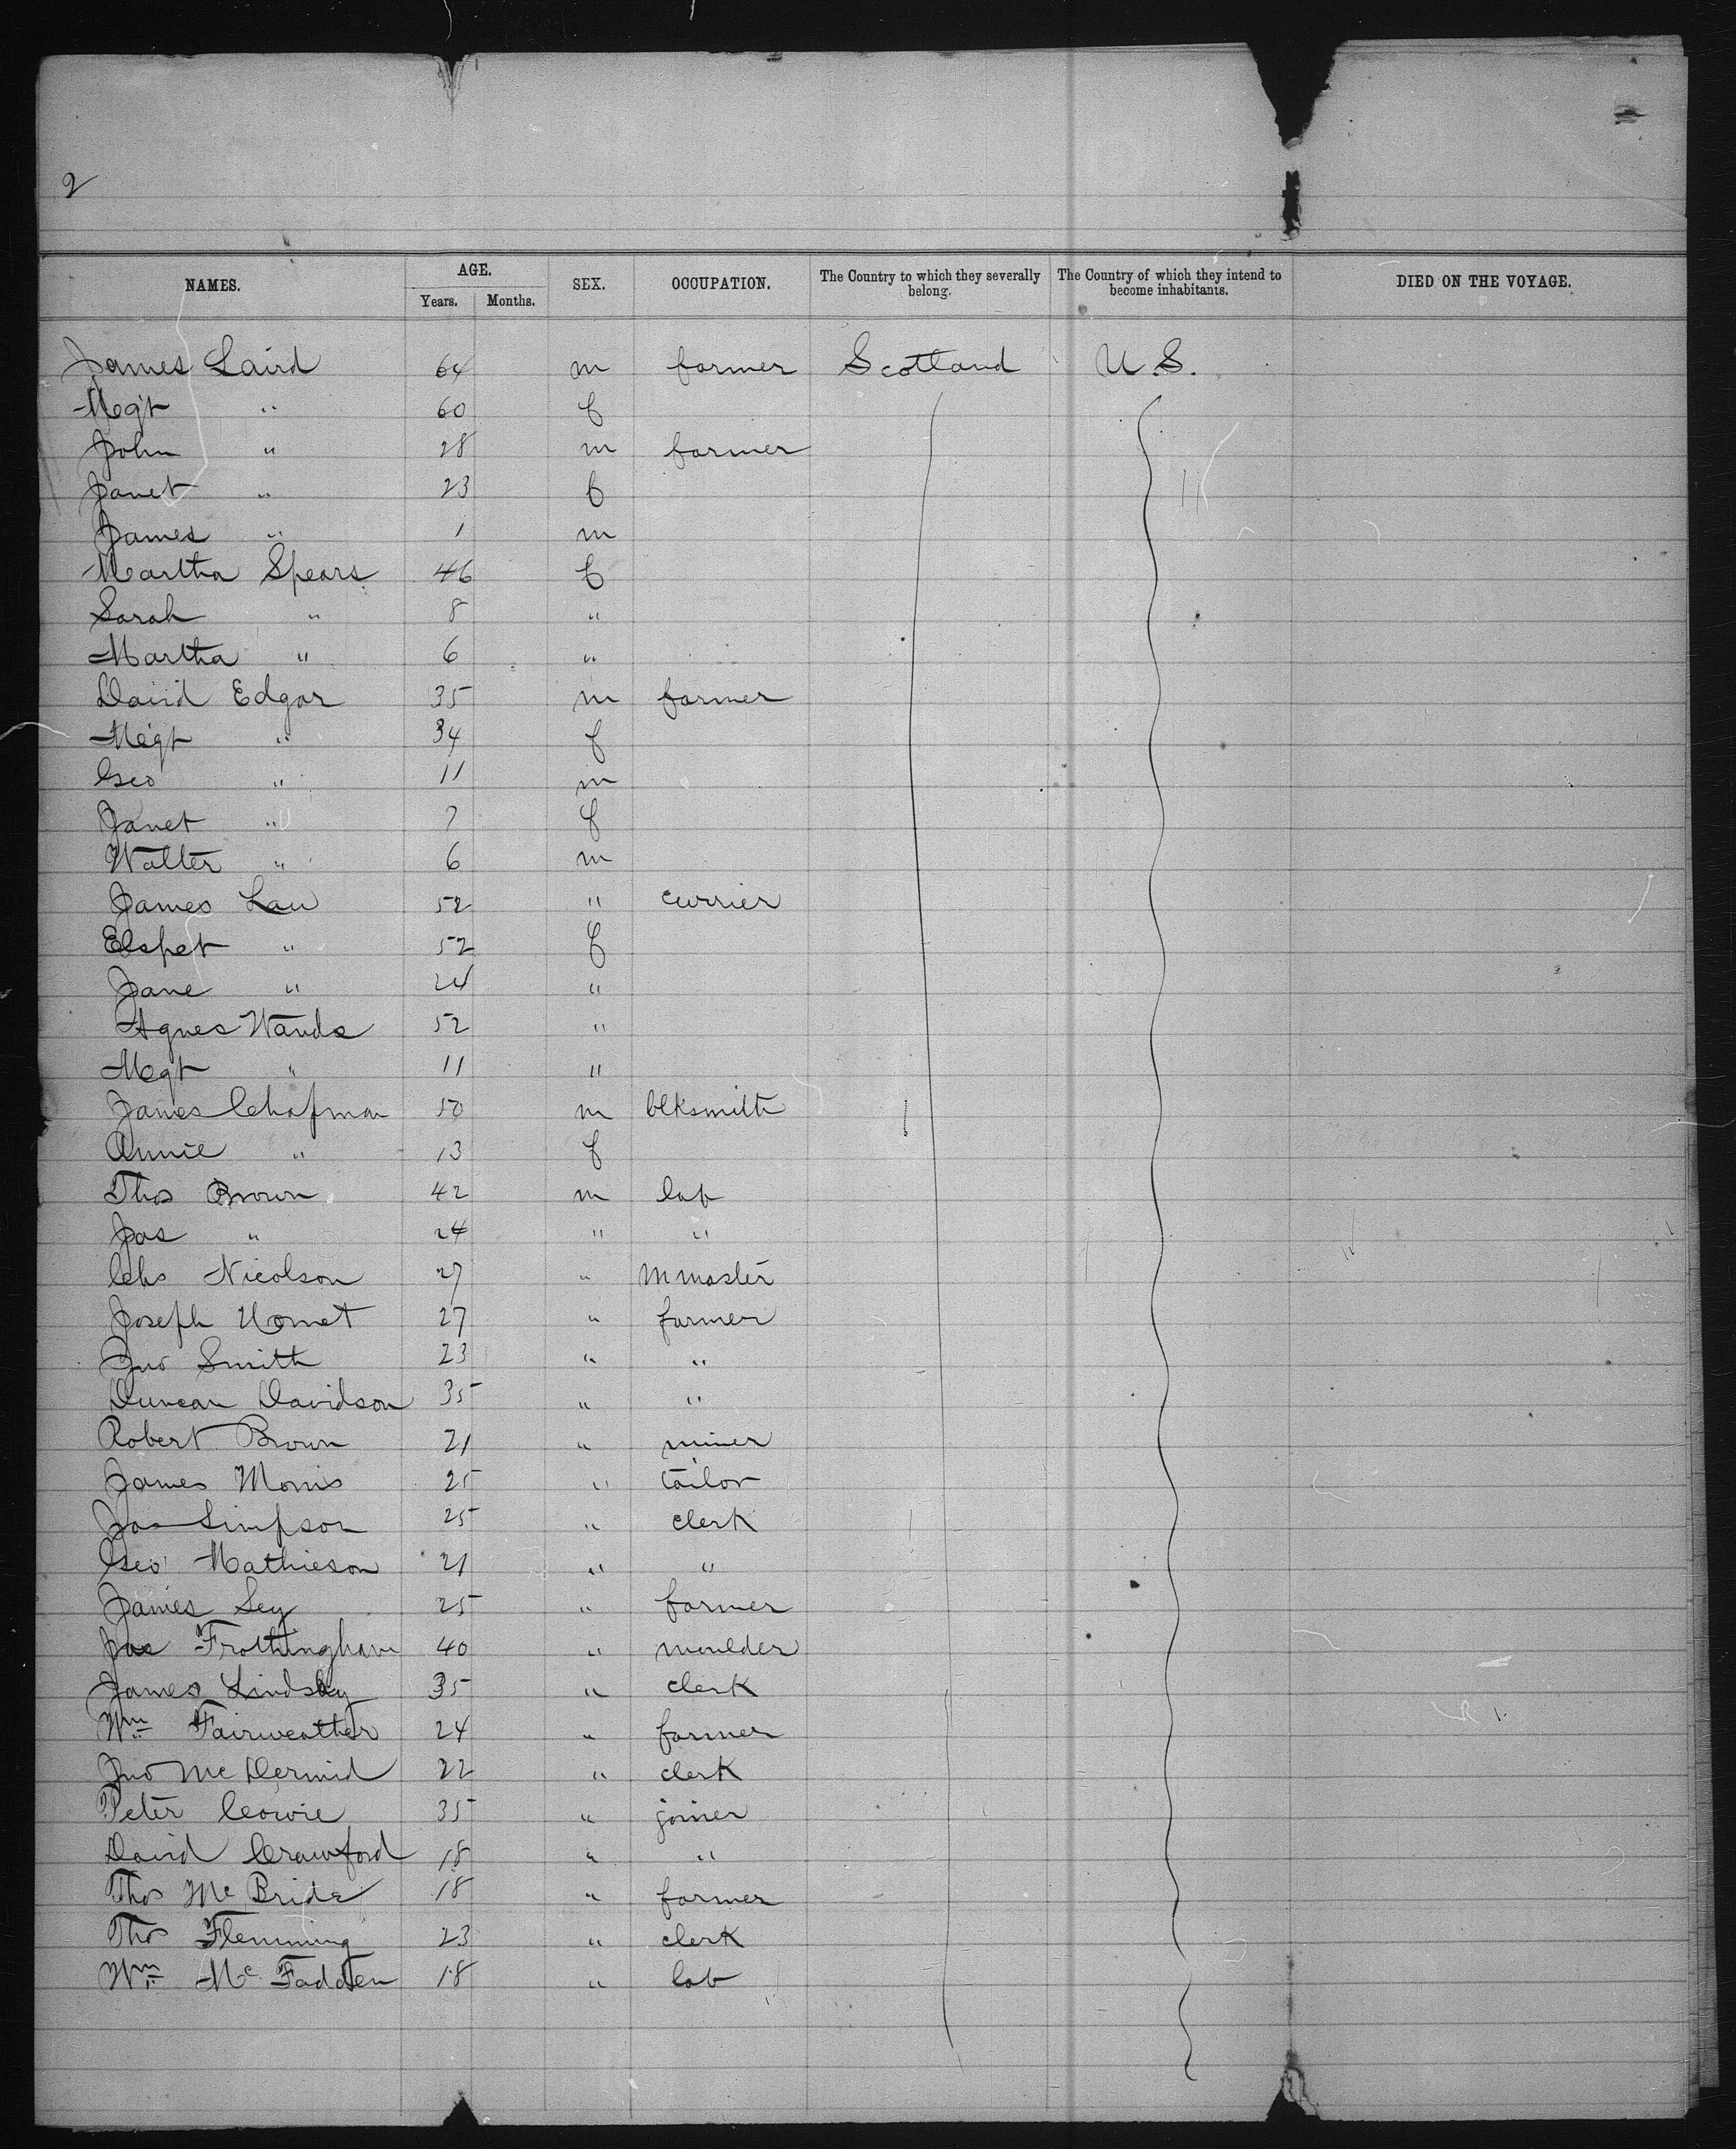 2
NAMES. AGE. SEX. OCCUPATION. The Country to which they severally belong. The Country of which they intend to become inhabitants. DIED ON THE VOYAGE.
Years. Months.
James Laird 64 m farmer Scotland U.S.
Mgt " 60 f
John " 28 m farmer
Janet " 23 f
James " 1 m
Martha Spears 46 f
Sarah " 8 "
Martha " 6 "
David Edgar 35 m farmer
Mgt " 34 f
Geo " 11 m
Janet " 7 f
Walter " 6 m
James Law 52 " currier
Elspet " 52 f
Jane " 24 "
Agnes Wands 52 "
Mgt " 11 "
James Chapman 50 m blksmith
Annie " 13 f
Thos Brown 42 m lab
Jas " 24 " "
Chs Nicolson 27 " m master
Joseph 27 " farmer
Jno Smith 23 " "
Duncan Davidson 35 " "
Robert Brown 21 " miner
James Morris 25 " tailor
Jas Simpson 25 " clerk
Geo Mathieson 21 " "
James Ley 25 " farmer
Jas Frothingham 40 " moulder
James Lindsay 35 " clerk
Wm Fairweather 24 " farmer
Jno McDermid 22 " clerk
Peter Cowie 35 " joiner
David Crawford 18 " "
Thos McBride 18 " farmer
Thos Flemming 23 " clerk
Wm McFadden 18 " lab